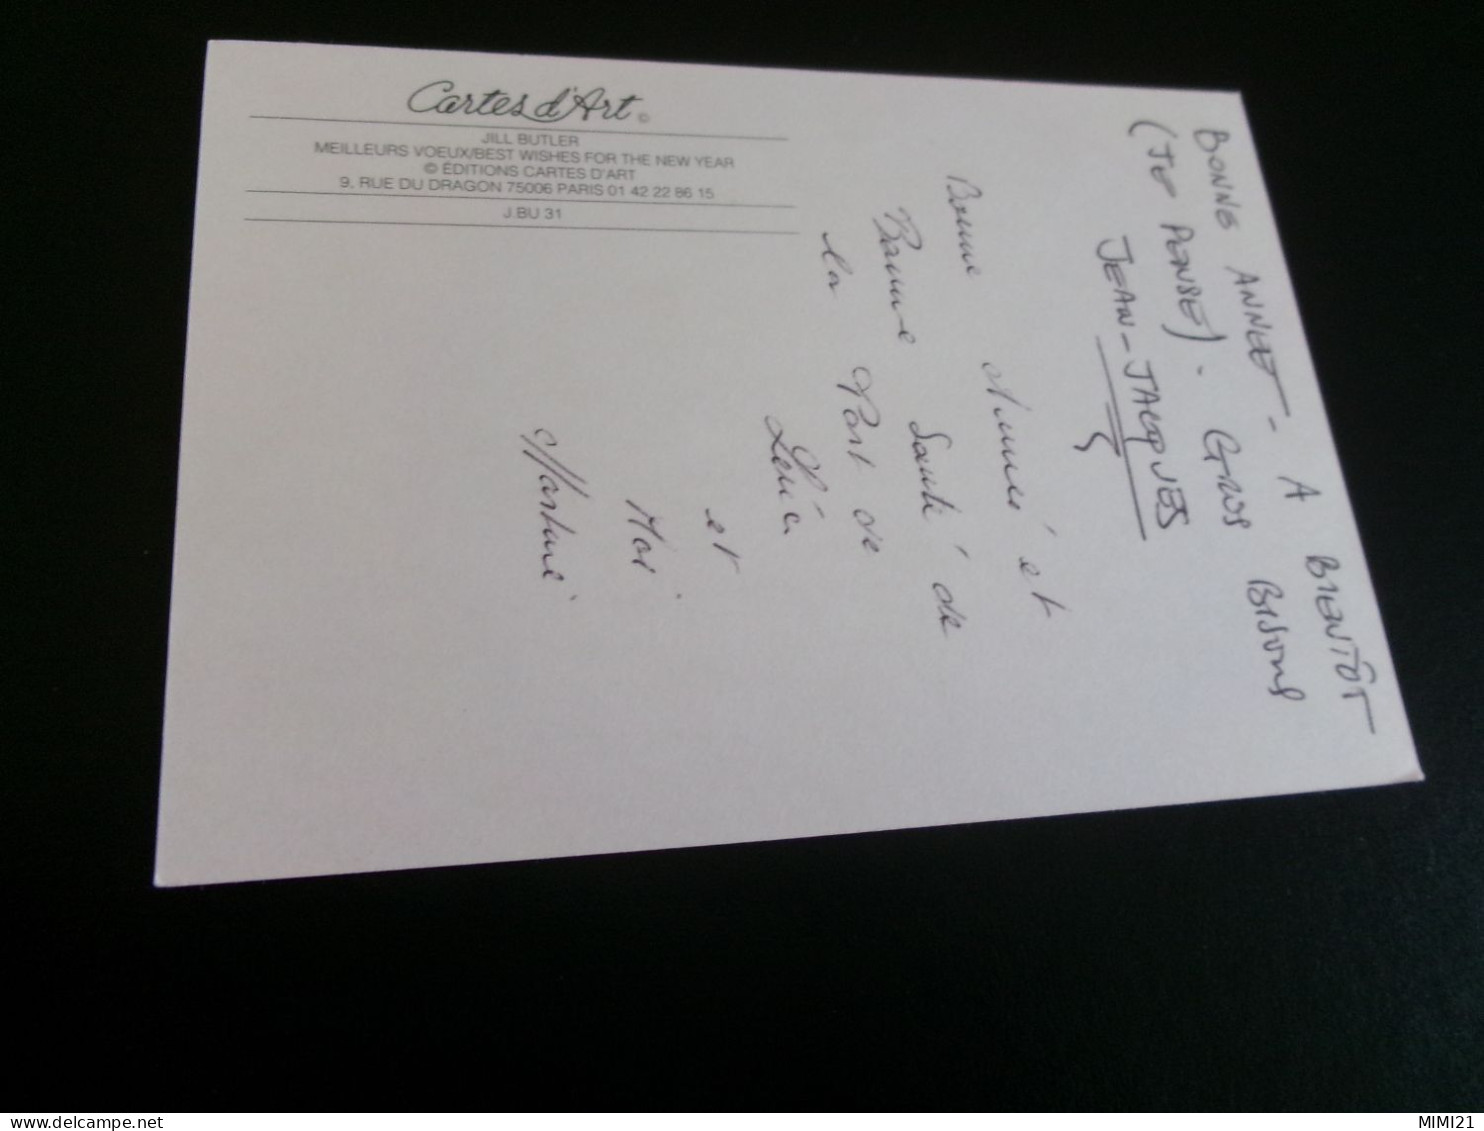 Cartes d'Art ©
JILL BUTLER
MEILLEURS VOEUX/BEST WISHES FOR THE NEW YEAR
© ÉDITIONS CARTES D'ART
9, RUE DU DRAGON 75006 PARIS 01 42 22 86 15
J.BU 31
BONNE ANNEE - A BIENTÔT
(JE PENSE). GROS BISOUS
JEAN-JACQUES
Bonne Année et
Bonne Santé de
la Part de
et
Moi
Martine
MIMI21